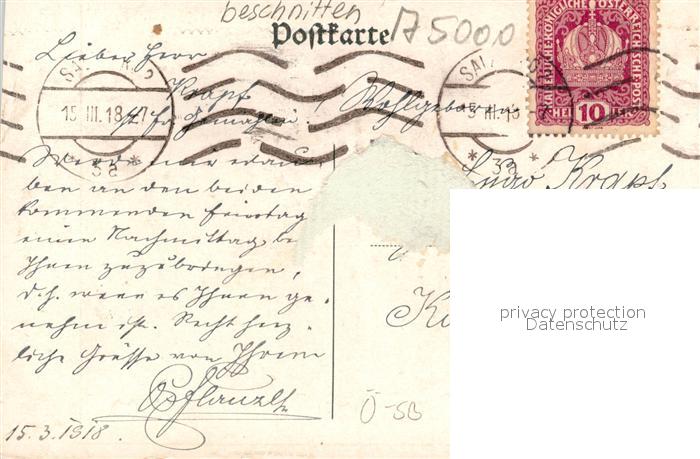 beschnitten
A 5000
Postkarte
KAISERLICHE KÖNIGLICHE ÖSTERREICHISCHE POST
HELLER 10
15 III. 18
3a
Lieber Herr
Krapf
Wohlgeboren
Hugo Krapf
Werde mir erlau-
ben an den beiden
kommenden Feiertag
einen Nachmittag bei
Ihnen zuzubringen,
d.h. wenn es Ihnen ge-
nehm ist. Recht herz-
liche Grüsse von Ihrem
15.3.1918.
Ö-SB
privacy protection
Datenschutz